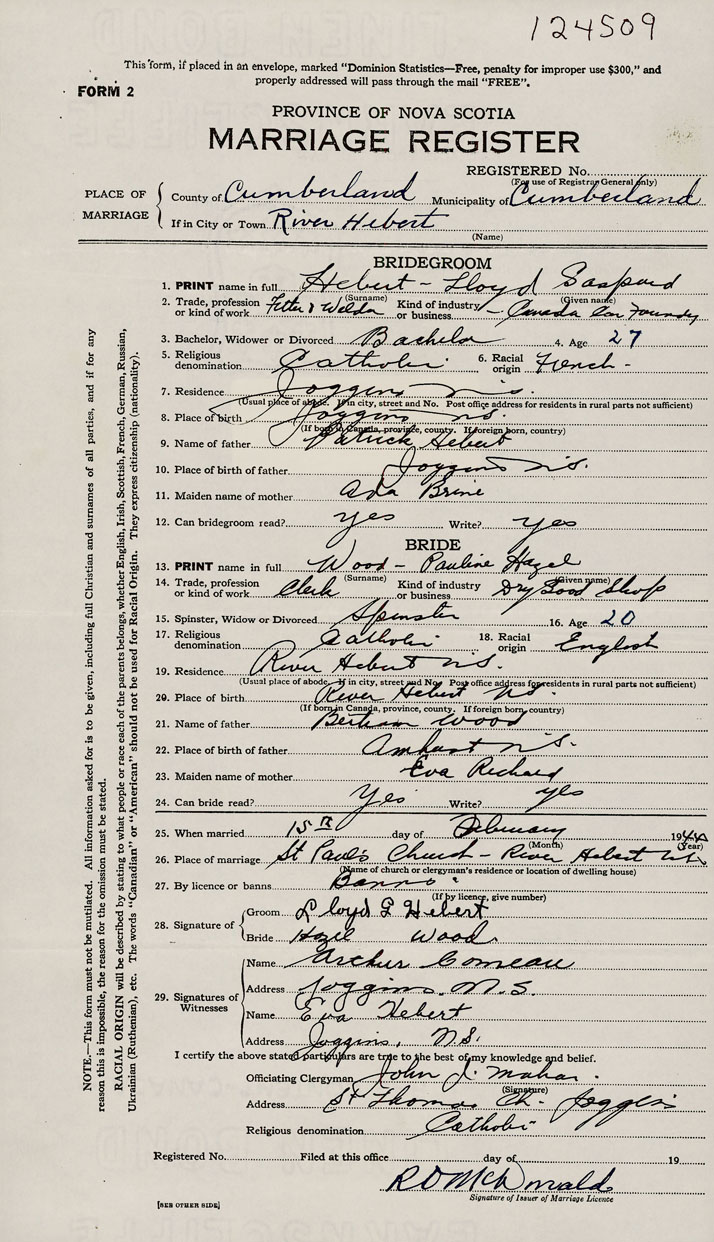 124509
This form, if placed in an envelope, marked "Dominion Statistics—Free, penalty for improper use $300," and
properly addressed will pass through the mail "FREE".
FORM 2
PROVINCE OF NOVA SCOTIA
MARRIAGE REGISTER
REGISTERED No.
(For use of Registrar General only)
PLACE OF MARRIAGE
County of Cumberland Municipality of Cumberland
If in City or Town River Hebert
(Name)
BRIDEGROOM
1. PRINT name in full Hebert - Lloyd Gaspard
(Surname) (Given name)
2. Trade, profession or kind of work Fitter & Welder Kind of industry or business Canada Car Foundry
3. Bachelor, Widower or Divorced Bachelor 4. Age 27
5. Religious denomination Catholic 6. Racial origin French -
7. Residence Joggins N.S.
(Usual place of abode. If in city, street and No. Post office address for residents in rural parts not sufficient)
8. Place of birth Joggins N.S.
(If born in Canada, province, county. If foreign born, country)
9. Name of father Patrick Hebert
10. Place of birth of father Joggins N.S.
11. Maiden name of mother Ada Brine
12. Can bridegroom read? yes Write? yes
BRIDE
13. PRINT name in full Wood - Pauline Hazel
(Surname) (Given name)
14. Trade, profession or kind of work Clerk Kind of industry or business Dry Good Shop
15. Spinster, Widow or Divorced Spinster 16. Age 20
17. Religious denomination Catholic 18. Racial origin English
19. Residence River Hebert N.S.
(Usual place of abode. If in city, street and No. Post office address for residents in rural parts not sufficient)
20. Place of birth River Hebert N.S.
(If born in Canada, province, county. If foreign born, country)
21. Name of father Bertram Wood
22. Place of birth of father Amherst N.S.
23. Maiden name of mother Eva Richard
24. Can bride read? Yes Write? yes
25. When married 15th day of February 1944
(Month) (Year)
26. Place of marriage St Paul's Church - River Hebert N.S.
(Name of church or clergyman's residence or location of dwelling house)
27. By licence or banns Banns
(If by licence, give number)
28. Signature of
Groom Lloyd G Hebert
Bride Hazel Wood
29. Signatures of Witnesses
Name Archer Comeau
Address Joggins, N.S.
Name Eva Hebert
Address Joggins, N.S.
I certify the above stated particulars are true to the best of my knowledge and belief.
Officiating Clergyman John J. Mahar.
(Signature)
Address St Thomas Ch. Joggins
Religious denomination Catholic
Registered No. Filed at this office day of 19
R D McDonald
Signature of Issuer of Marriage Licence
[SEE OTHER SIDE]
NOTE.—This form must not be mutilated. All information asked for is to be given, including full Christian and surnames of all parties, and if for any
reason this is impossible, the reason for the omission must be stated.
RACIAL ORIGIN will be described by stating to what people or race each of the parents belongs, whether English, Irish, Scottish, French, German, Russian,
Ukrainian (Ruthenian), etc. The words "Canadian" or "American" should not be used for Racial Origin. They express citizenship (nationality).